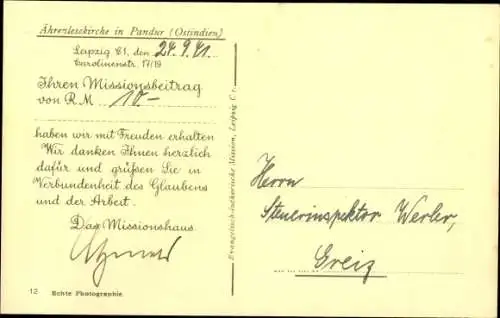 Ährenlesekirche in Pandur (Ostindien)
Leipzig C1, den 24.9.41
Carolinenstr. 17/19
Ihren Missionsbeitrag
von R.M. 10.-
haben wir mit Freuden erhalten
Wir danken Ihnen herzlich
dafür und grüßen Sie in
Verbundenheit des Glaubens
und der Arbeit.
Das Missionshaus.
12 Echte Photographie
Evangelisch-lutherische Mission, Leipzig C 1.
Herrn
Steuerinspektor Werler,
Greiz